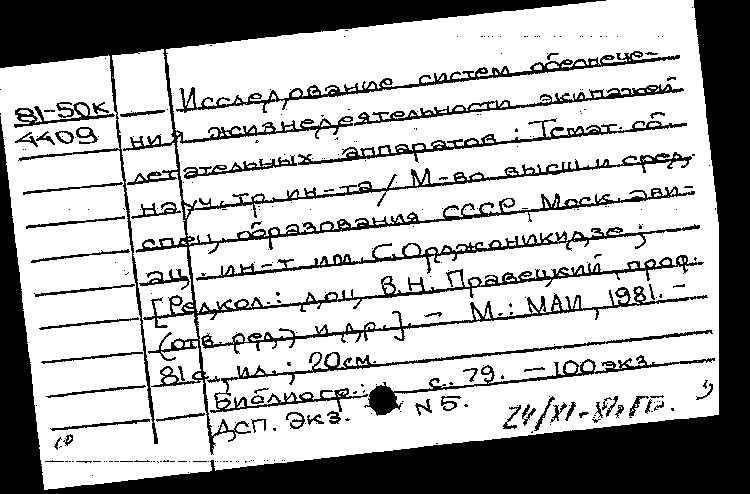 81-50к Исследование систем обеспече-
4409 ния жизнедеятельности экипажей
летательных аппаратов : Темат. сб.
науч. тр. ин-та / М-во высш. и сред.
спец. образования СССР, Моск. ави-
ац. ин-т им. С. Орджоникидзе ;
[Редкол.: доц. В.Н. Правецкий, проф.
(отв. ред.) и др.]. - М.: МАИ, 1981. -
81 с., ил.; 20 см.
Библиогр.: с. 79. - 100 экз.
ДСП. Экз. N 5.